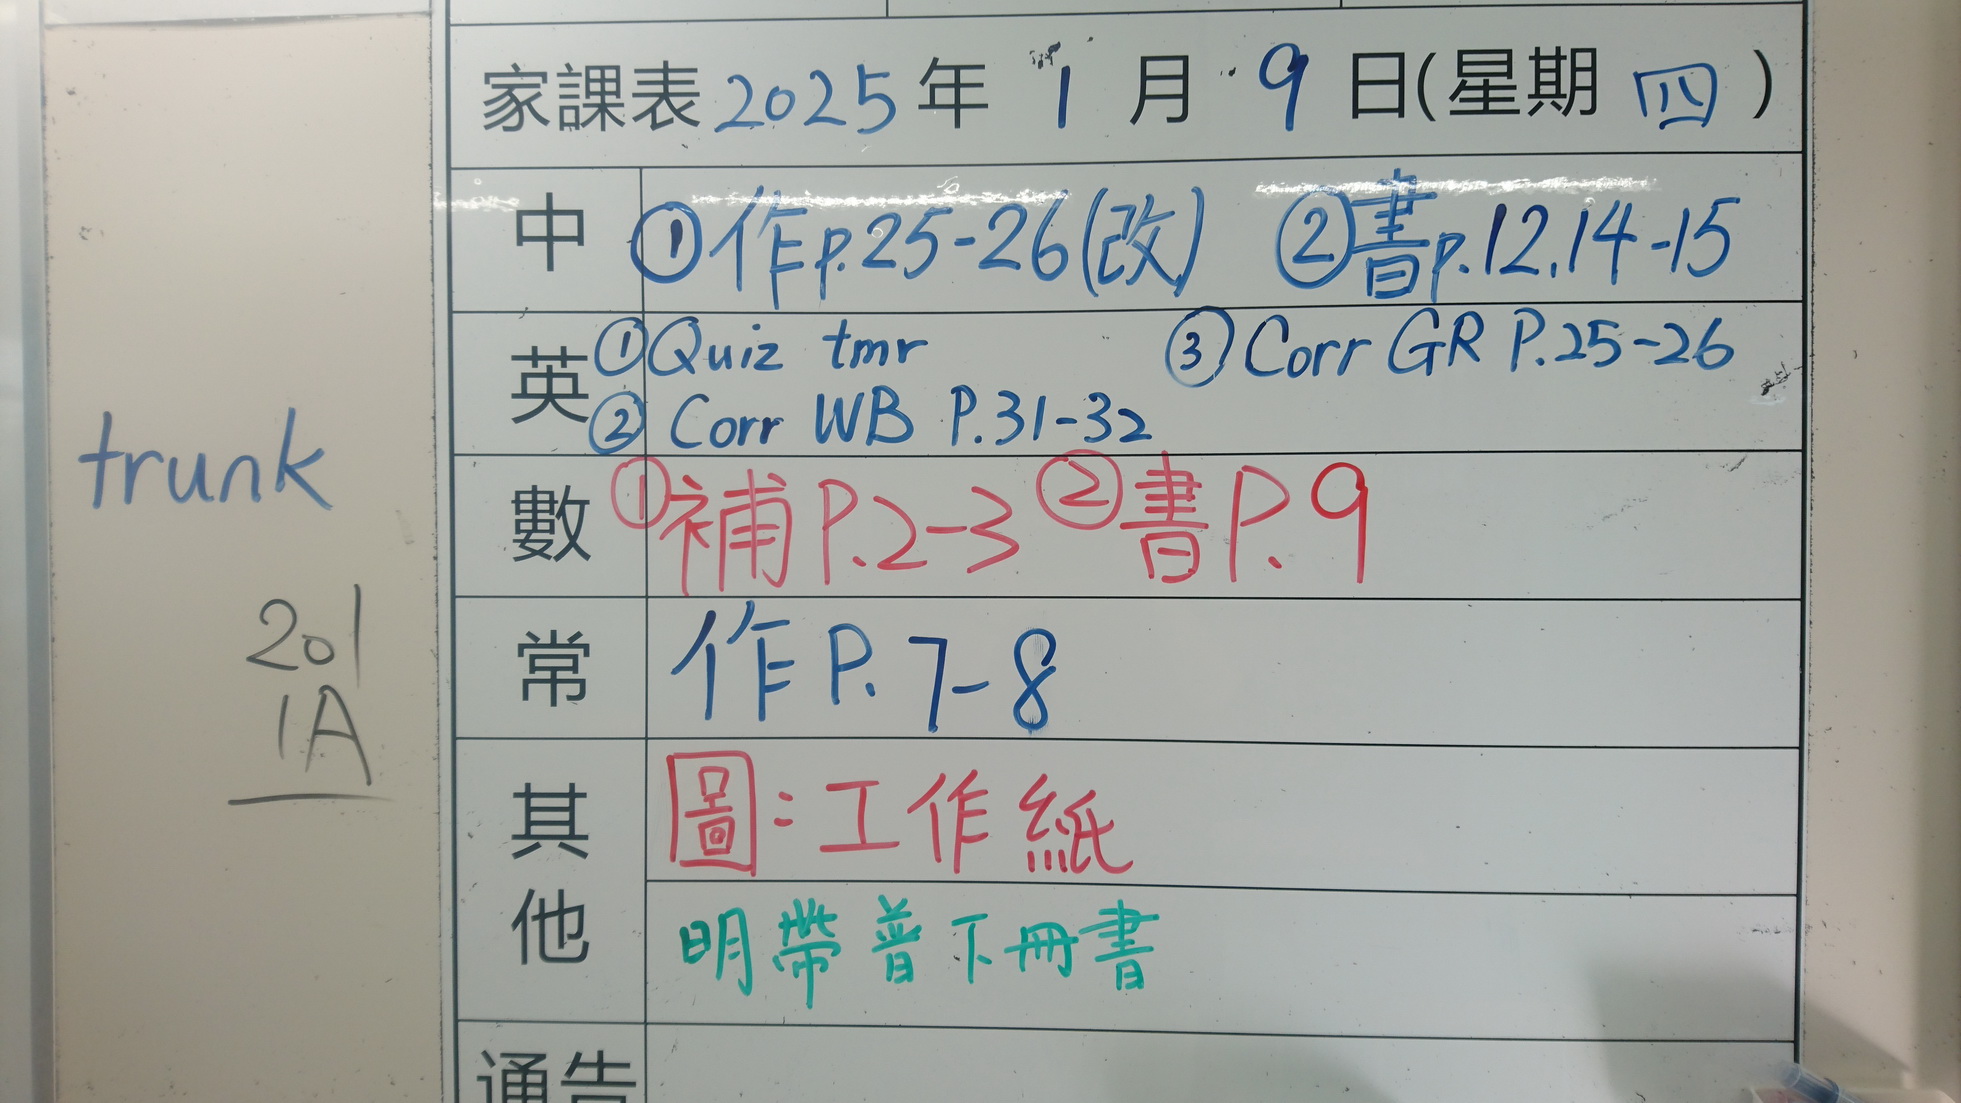 家課表 2025 年 1 月 9 日(星期 四 )
中 ①作p.25-26(改) ②書p.12,14-15
英 ①Quiz tmr ③Corr GR P.25-26
②Corr WB P.31-32
trunk
數 ①補P.2-3 ②書P.9
201
1A
常 作P.7-8
其他 圖:工作紙
明帶普下冊書
通告